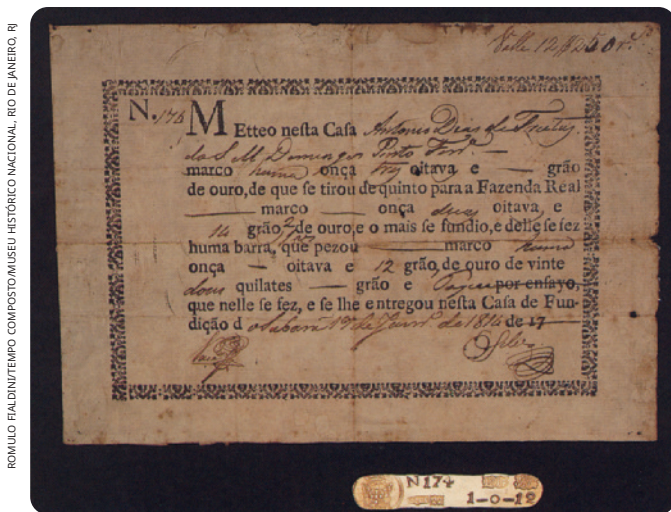 ROMULO FIALDINI/TEMPO COMPOSTO/MUSEU HISTÓRICO NACIONAL, RIO DE JANEIRO, RJ
Valle 12
N. 174 M Etteo neſta Caſa Antonio Dias de Freitas
do S. M. Domingos Pinto
marco huma onça tres oitava e — grão
de ouro, de que ſe tirou de quinto para a Fazenda Real
— marco — onça duas oitava, e
14 grão de ouro, e o mais ſe fundio, e delle ſe fez
huma barra, que pezou — marco huma
onça — oitava e 12 grão de ouro de vinte
dous quilates — grão e por enſayo,
que nelle ſe fez, e ſe lhe entregou neſta Caſa de Fun-
dição d o Sabará de 1814 de 17
Silva
N174
1-0-12